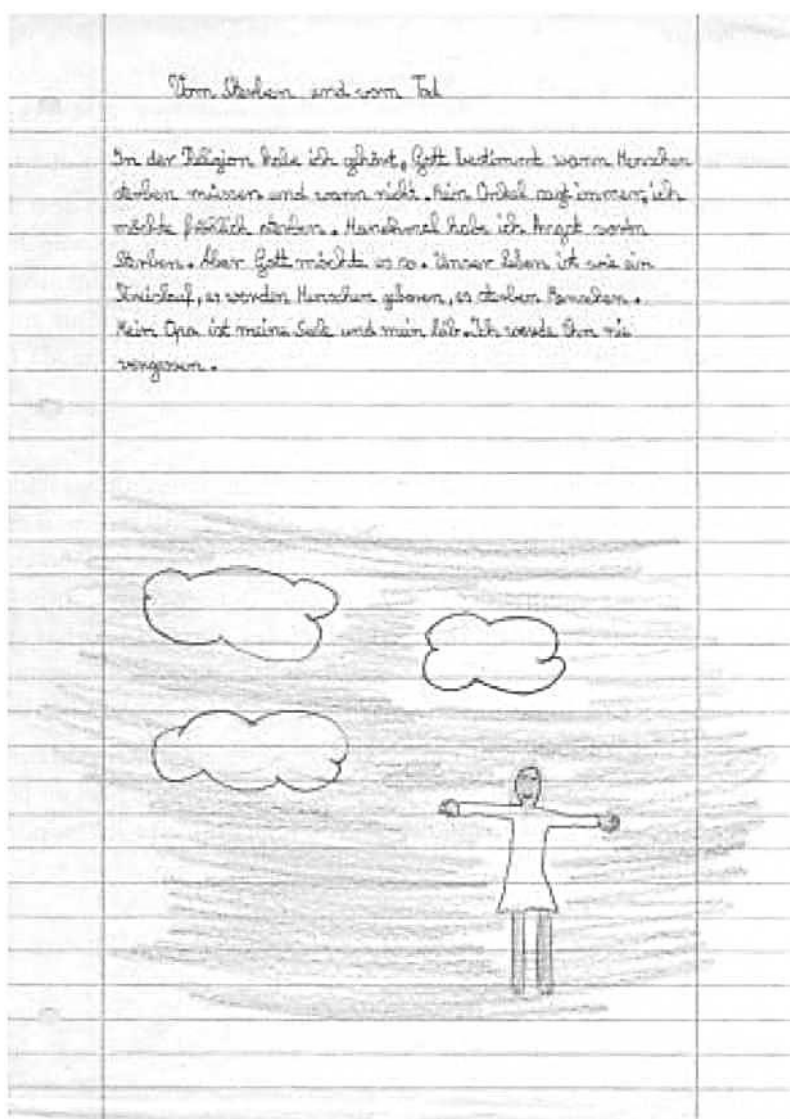 Vom Sterben und vom Tod
In der Religion habe ich gehört, Gott bestimmt wann Menschen
sterben müssen und wann nicht. Mein Onkel sagt immer, ich
möchte fröhlich sterben. Manchmal habe ich Angst vorm
Sterben. Aber Gott möchte es so. Unser leben ist wie ein
Kreislauf, es werden Menschen geboren, es sterben Menschen.
Mein Opa ist meine Seele und mein leib. Ich werde Ihn nie
vergessen.